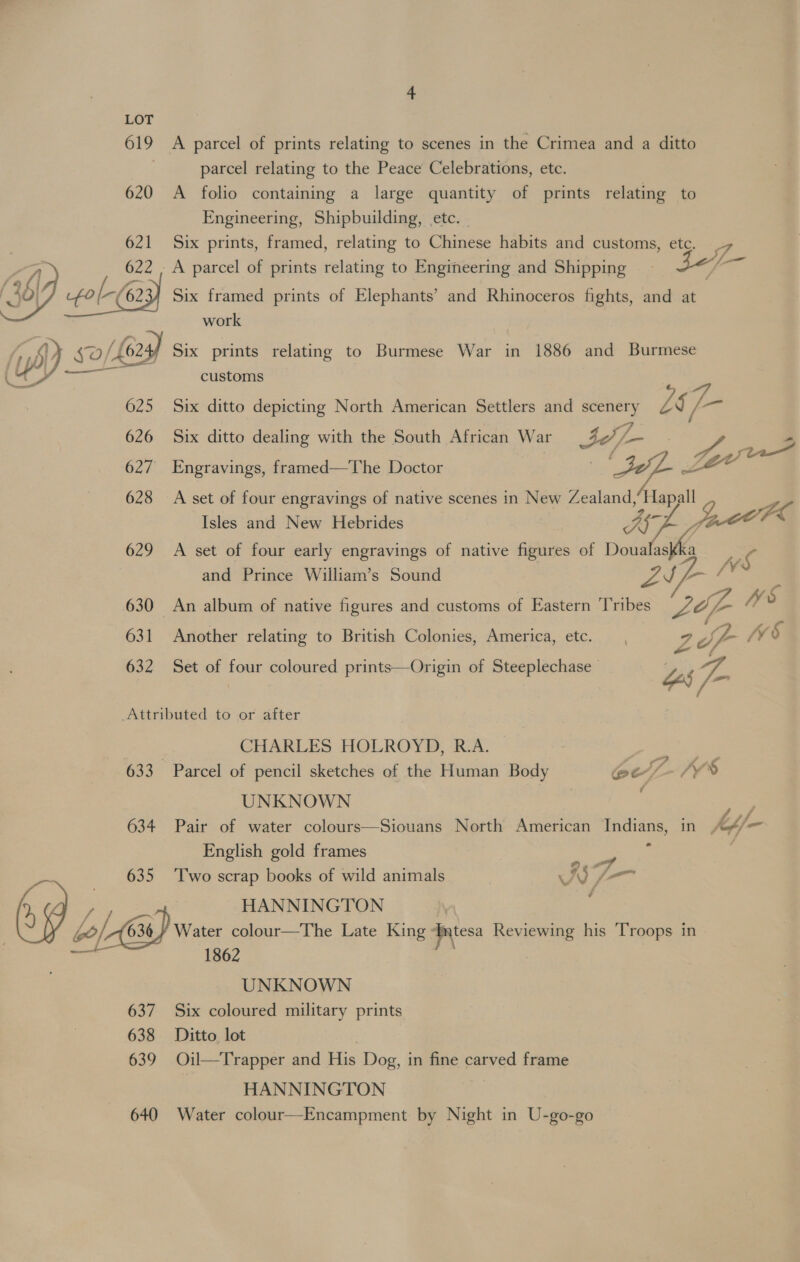 4
LOT
619 A parcel of prints relating to scenes in the Crimea and a ditto
parcel relating to the Peace Celebrations, etc.
620 A folio containing a large quantity of prints relating to
Engineering, Shipbuilding, etc.
621 Six prints, framed, relating to Chinese habits and customs, etc.
622 A parcel of prints relating to Engineering and Shipping 30/-
40/- 623 Six framed prints of Elephants' and Rhinoceros fights, and at
work
50/- 624 Six prints relating to Burmese War in 1886 and Burmese
customs
625 Six ditto depicting North American Settlers and scenery 25/-
626 Six ditto dealing with the South African War 30/-
627 Engravings, framed—The Doctor 30/-
628 A set of four engravings of native scenes in New Zealand, Hapall
Isles and New Hebrides
629 A set of four early engravings of native figures of Doualaskka
and Prince William's Sound 25/- NS
630 An album of native figures and customs of Eastern Tribes 20/- NS
631 Another relating to British Colonies, America, etc. 20/- NS
632 Set of four coloured prints—Origin of Steeplechase
Attributed to or after
CHARLES HOLROYD, R.A.
633 Parcel of pencil sketches of the Human Body 60/- NS
UNKNOWN
634 Pair of water colours—Siouans North American Indians, in
English gold frames
635 Two scrap books of wild animals
HANNINGTON
60/- 636 Water colour—The Late King Mtesa Reviewing his Troops in
1862
UNKNOWN
637 Six coloured military prints
638 Ditto lot
639 Oil—Trapper and His Dog, in fine carved frame
HANNINGTON
640 Water colour—Encampment by Night in U-go-go